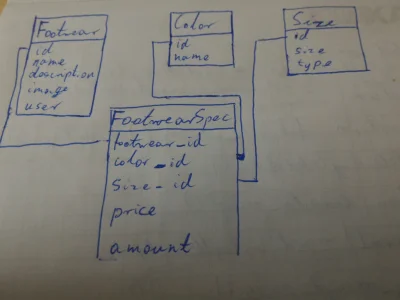 Footwear
id
name
description
image
user
Color
id
name
Size
id
size
type
FootwearSpec
footwear_id
color_id
size_id
price
amount